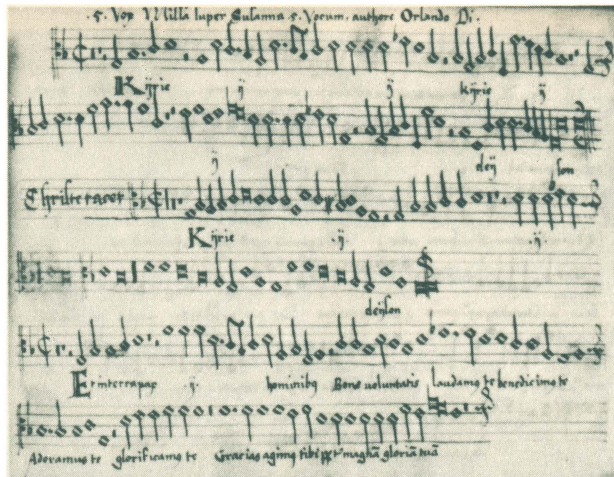 5. Vox Missa super Susanna 5. Vocum. authore Orlando Di.
Kyrie ij ij kyrie ij
ij leÿ son
Christe tacet
Kÿrie ij ij
leÿson
Et in terra pax ij. hominibꝰ Bone voluntatis laudamꝰ te benedicimꝰ te
Adoramus te glorificamꝰ te Gracias agimꝰ tibi ꝓpt magnã gloriã tuã